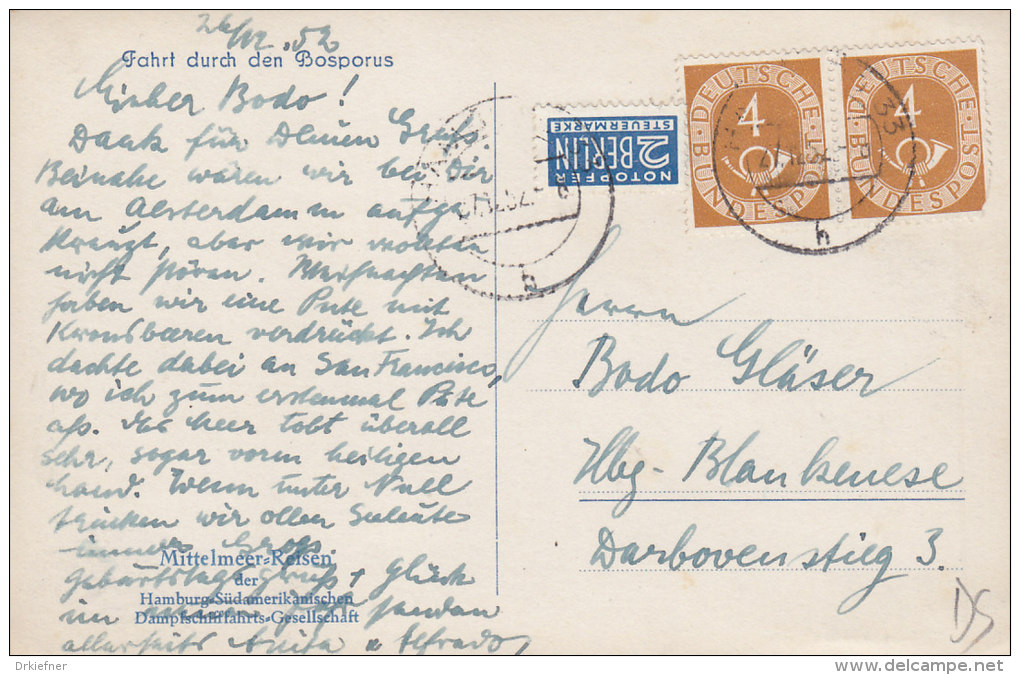 26/12.52
Fahrt durch den Bosporus
Lieber Bodo!
Dank für Deinen Gruß.
Beinahe wären wir bei Dir
am Alsterdamm aufge
kreuzt, aber wir wollten
nicht stören. Weihnachten
haben wir eine Pute mit
Kronsbeeren verdrückt. Ich
dachte dabei an San Francisco,
wo ich zum erstenmal Pute
aß. Das Meer tobt überall
sehr, sogar vorm heiligen
Land. Wenn unter Null
trinken wir ollen Seeleute
immer Grog.
Mittelmeer-Reisen
Geburtstagsgruß + Glück
der
im
Hamburg-Südamerikanischen
Dampfschiffahrts-Gesellschaft
allerseits Anita u Alfredo
NOTOPFER
2 BERLIN
STEUERMARKE
DEUTSCHE BUNDESPOST
4
DEUTSCHE BUNDESPOST
4
33
h
Herrn
Bodo Gläser
Hbg-Blankenese
Darbovenstieg 3.
DS
Drkiefner
delcampe.net